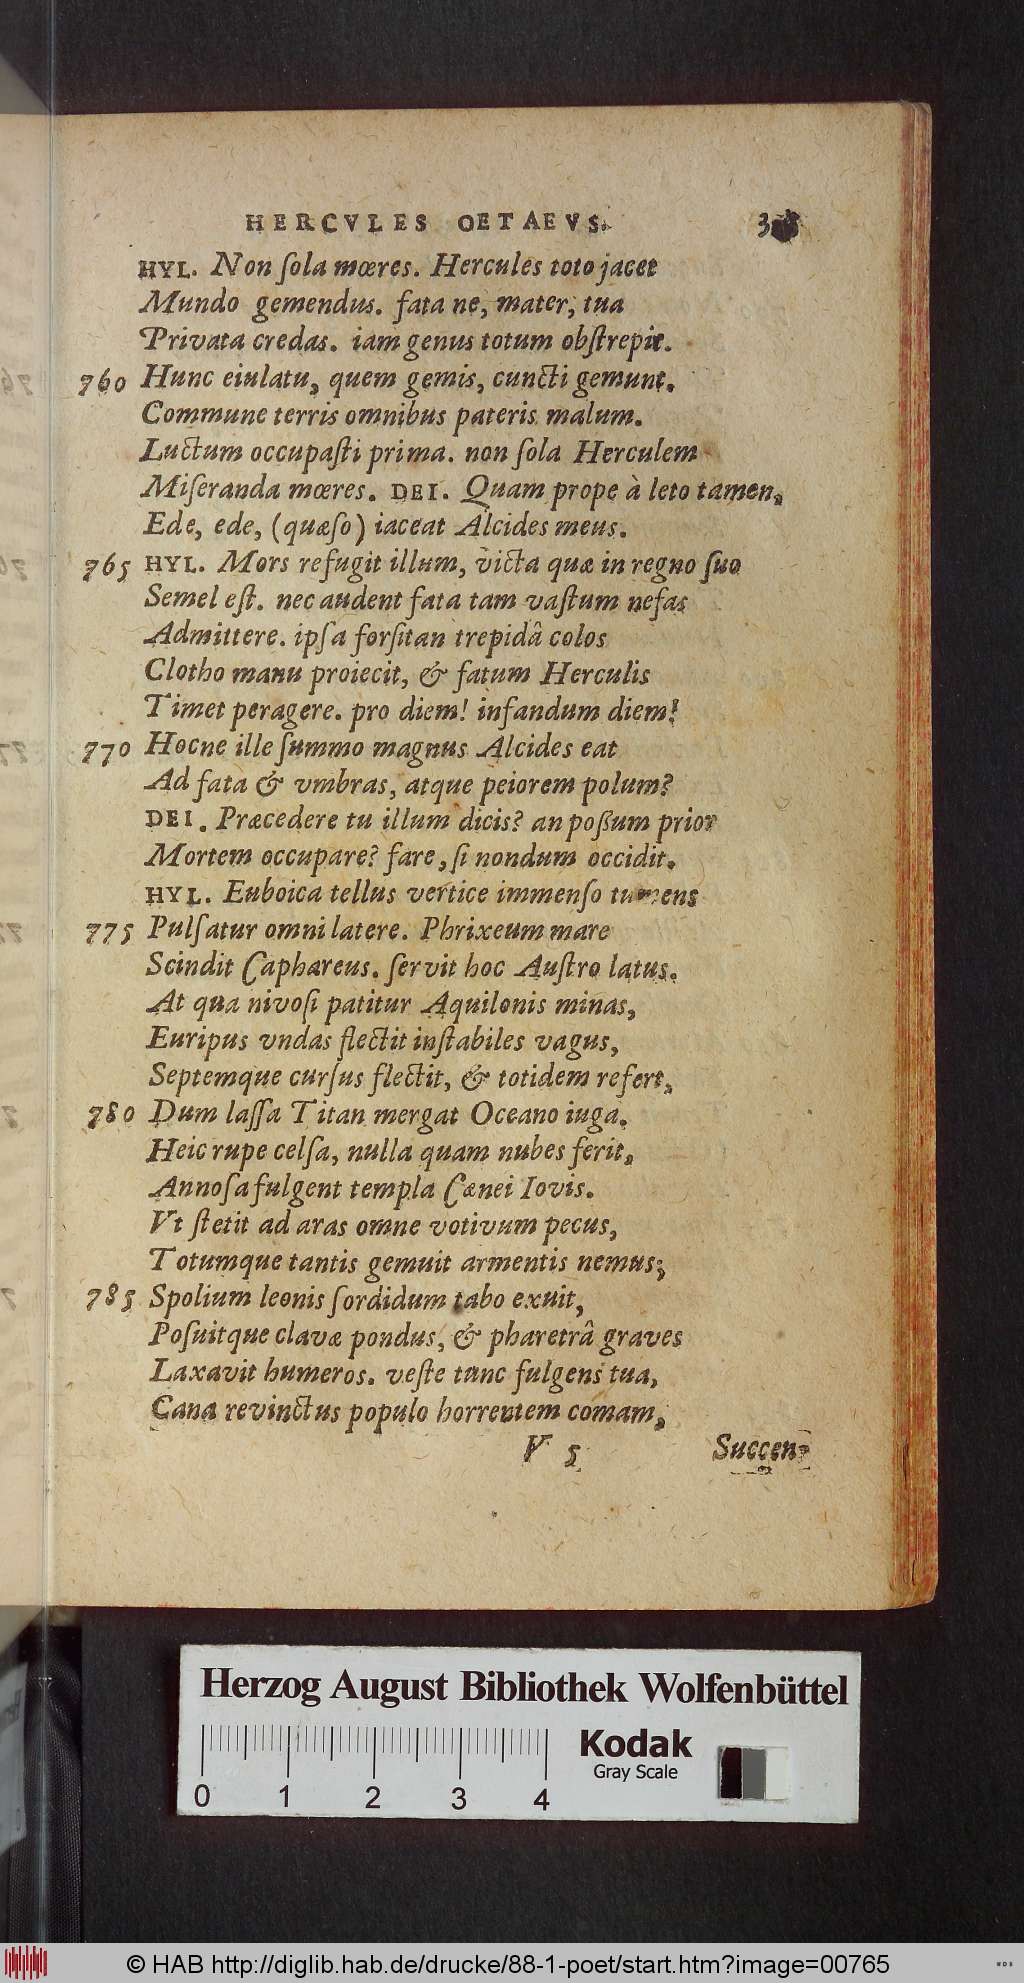 HERCVLES OETAEVS.
HYL. Non ſola mœres. Hercules toto jacet
Mundo gemendus. fata ne, mater, tua
Privata credas. iam genus totum obſtrepit.
760 Hunc eiulatu, quem gemis, cuncti gemunt.
Commune terris omnibus pateris malum.
Luctum occupaſti prima. non ſola Herculem
Miſeranda mœres. DEI. Quam prope à leto tamen,
Ede, ede, (quæſo) iaceat Alcides meus.
765 HYL. Mors refugit illum, victa quæ in regno ſuo
Semel eſt. nec audent fata tam vaſtum nefas
Admittere. ipſa forſitan trepidâ colos
Clotho manu proiecit, & fatum Herculis
Timet peragere. pro diem! infandum diem!
770 Hocne ille ſummo magnus Alcides eat
Ad fata & vmbras, atque peiorem polum?
DEI. Præcedere tu illum dicis? an poßum prior
Mortem occupare? fare, ſi nondum occidit.
HYL. Euboica tellus vertice immenſo tumens
775 Pulſatur omni latere. Phrixeum mare
Scindit Caphareus. ſervit hoc Auſtro latus.
At qua nivoſi patitur Aquilonis minas,
Euripus vndas flectit inſtabiles vagus,
Septemque curſus flectit, & totidem refert,
780 Dum laſſa Titan mergat Oceano iuga.
Heic rupe celſa, nulla quam nubes ferit,
Annoſa fulgent templa Cænei Iovis.
Vt ſtetit ad aras omne votivum pecus,
Totumque tantis gemuit armentis nemus;
785 Spolium leonis ſordidum tabo exuit,
Poſuitque clavæ pondus, & pharetrâ graves
Laxavit humeros. veſte tunc fulgens tua,
Cana revinctus populo horrentem comam,
V 5 Succen-
Herzog August Bibliothek Wolfenbüttel
Kodak
Gray Scale
0 1 2 3 4
© HAB http://diglib.hab.de/drucke/88-1-poet/start.htm?image=00765